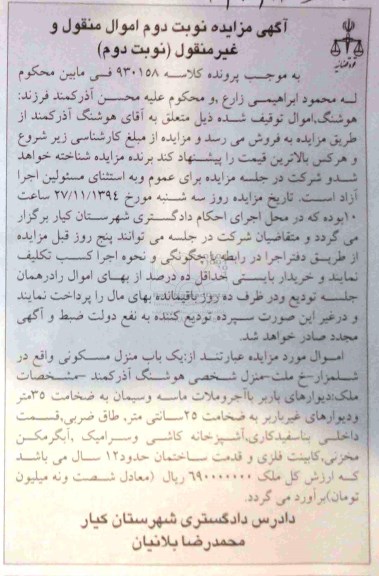 آگهی مزایده نوبت دوم اموال منقول و
غیرمنقول (نوبت دوم)
قوه قضائیه
به موجب پرونده کلاسه ۹۳۰۱۵۸ فی مابین محکوم
له محمود ابراهیمی زارع ,و محکوم علیه محسن آذرکمند فرزند:
هوشنگ,اموال توقیف شده ذیل متعلق به آقای هوشنگ آذرکمند از
طریق مزایده به فروش می رسد و مزایده از مبلغ کارشناسی زیر شروع
و هرکس بالاترین قیمت را پیشنهاد کند برنده مزایده شناخته خواهد
شدو شرکت در جلسه مزایده برای عموم وبه استثنای مسئولین اجرا
آزاد است. تاریخ مزایده روز سه شنبه مورخ ۲۷/۱۱/۱۳۹۴ ساعت
۱۰بوده که در محل اجرای احکام دادگستری شهرستان کیار برگزار
می گردد و متقاضیان شرکت در جلسه می توانند پنج روز قبل مزایده
از طریق دفتراجرا در رابطه با چگونگی و نحوه اجرا کسب تکلیف
نمایند و خریدار بایستی حداقل ده درصد از بهای اموال رادرهمان
جلسه تودیع ودر ظرف ده روز باقیمانده بهای مال را پرداخت نمایند
و درغیر این صورت سپرده تودیع کننده به نفع دولت ضبط و آگهی
مجدد صادر خواهد شد.
اموال مورد مزایده عبارتند از:یک باب منزل مسکونی واقع در
شلمزار-خ ملت-منزل شخصی هوشنگ آذرکمند –مشخصات
ملک:دیوارهای باربر باآجروملات ماسه وسیمان به ضخامت ۳۵متر
ودیوارهای غیرباربر به ضخامت ۲۵سانتی متر, طاق ضربی,قسمت
داخلی بناسفیدکاری,آشپزخانه کاشی وسرامیک ,آبگرمکن
مخزنی,کابینت فلزی و قدمت ساختمان حدود۱۲ سال می باشد
که ارزش کل ملک ۶۹۰۰۰۰۰۰۰ ریال (معادل شصت ونه میلیون
تومان)برآورد می گردد.
دادرس دادگستری شهرستان کیار
محمدرضا بلانیان